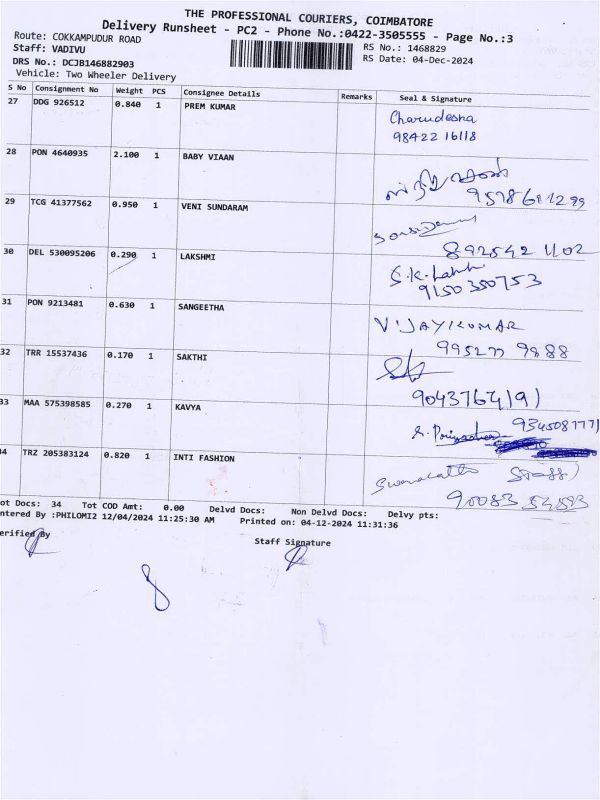 THE PROFESSIONAL COURIERS, COIMBATORE
Delivery Runsheet - PC2 - Phone No.:0422-3505555 - Page No.:3
Route: COKKAMPUDUR ROAD
RS No.: 1468829
Staff: VADIVU
RS Date: 04-Dec-2024
DRS No.: DCJB146882903
Vehicle: Two Wheeler Delivery
S No Consignment No Weight PCS Consignee Details Remarks Seal & Signature
27 DDG 926512 0.840 1 PREM KUMAR Charudesna
98422 16118
28 PON 4640935 2.100 1 BABY VIAAN
29 TCG 41377562 0.950 1 VENI SUNDARAM
892542 1102
30 DEL 530095206 0.290 1 LAKSHMI S.K.
9150350753
31 PON 9213481 0.630 1 SANGEETHA VIJAYKUMAR
99527 9888
32 TRR 15537436 0.170 1 SAKTHI
9043764191
33 MAA 575398585 0.270 1 KAVYA
34 TRZ 205383124 0.820 1 INTI FASHION
ot Docs: 34 Tot COD Amt: 0.00 Delvd Docs: Non Delvd Docs: Delvy pts:
ntered By :PHILOMI2 12/04/2024 11:25:30 AM Printed on: 04-12-2024 11:31:36
erified By
Staff Signature